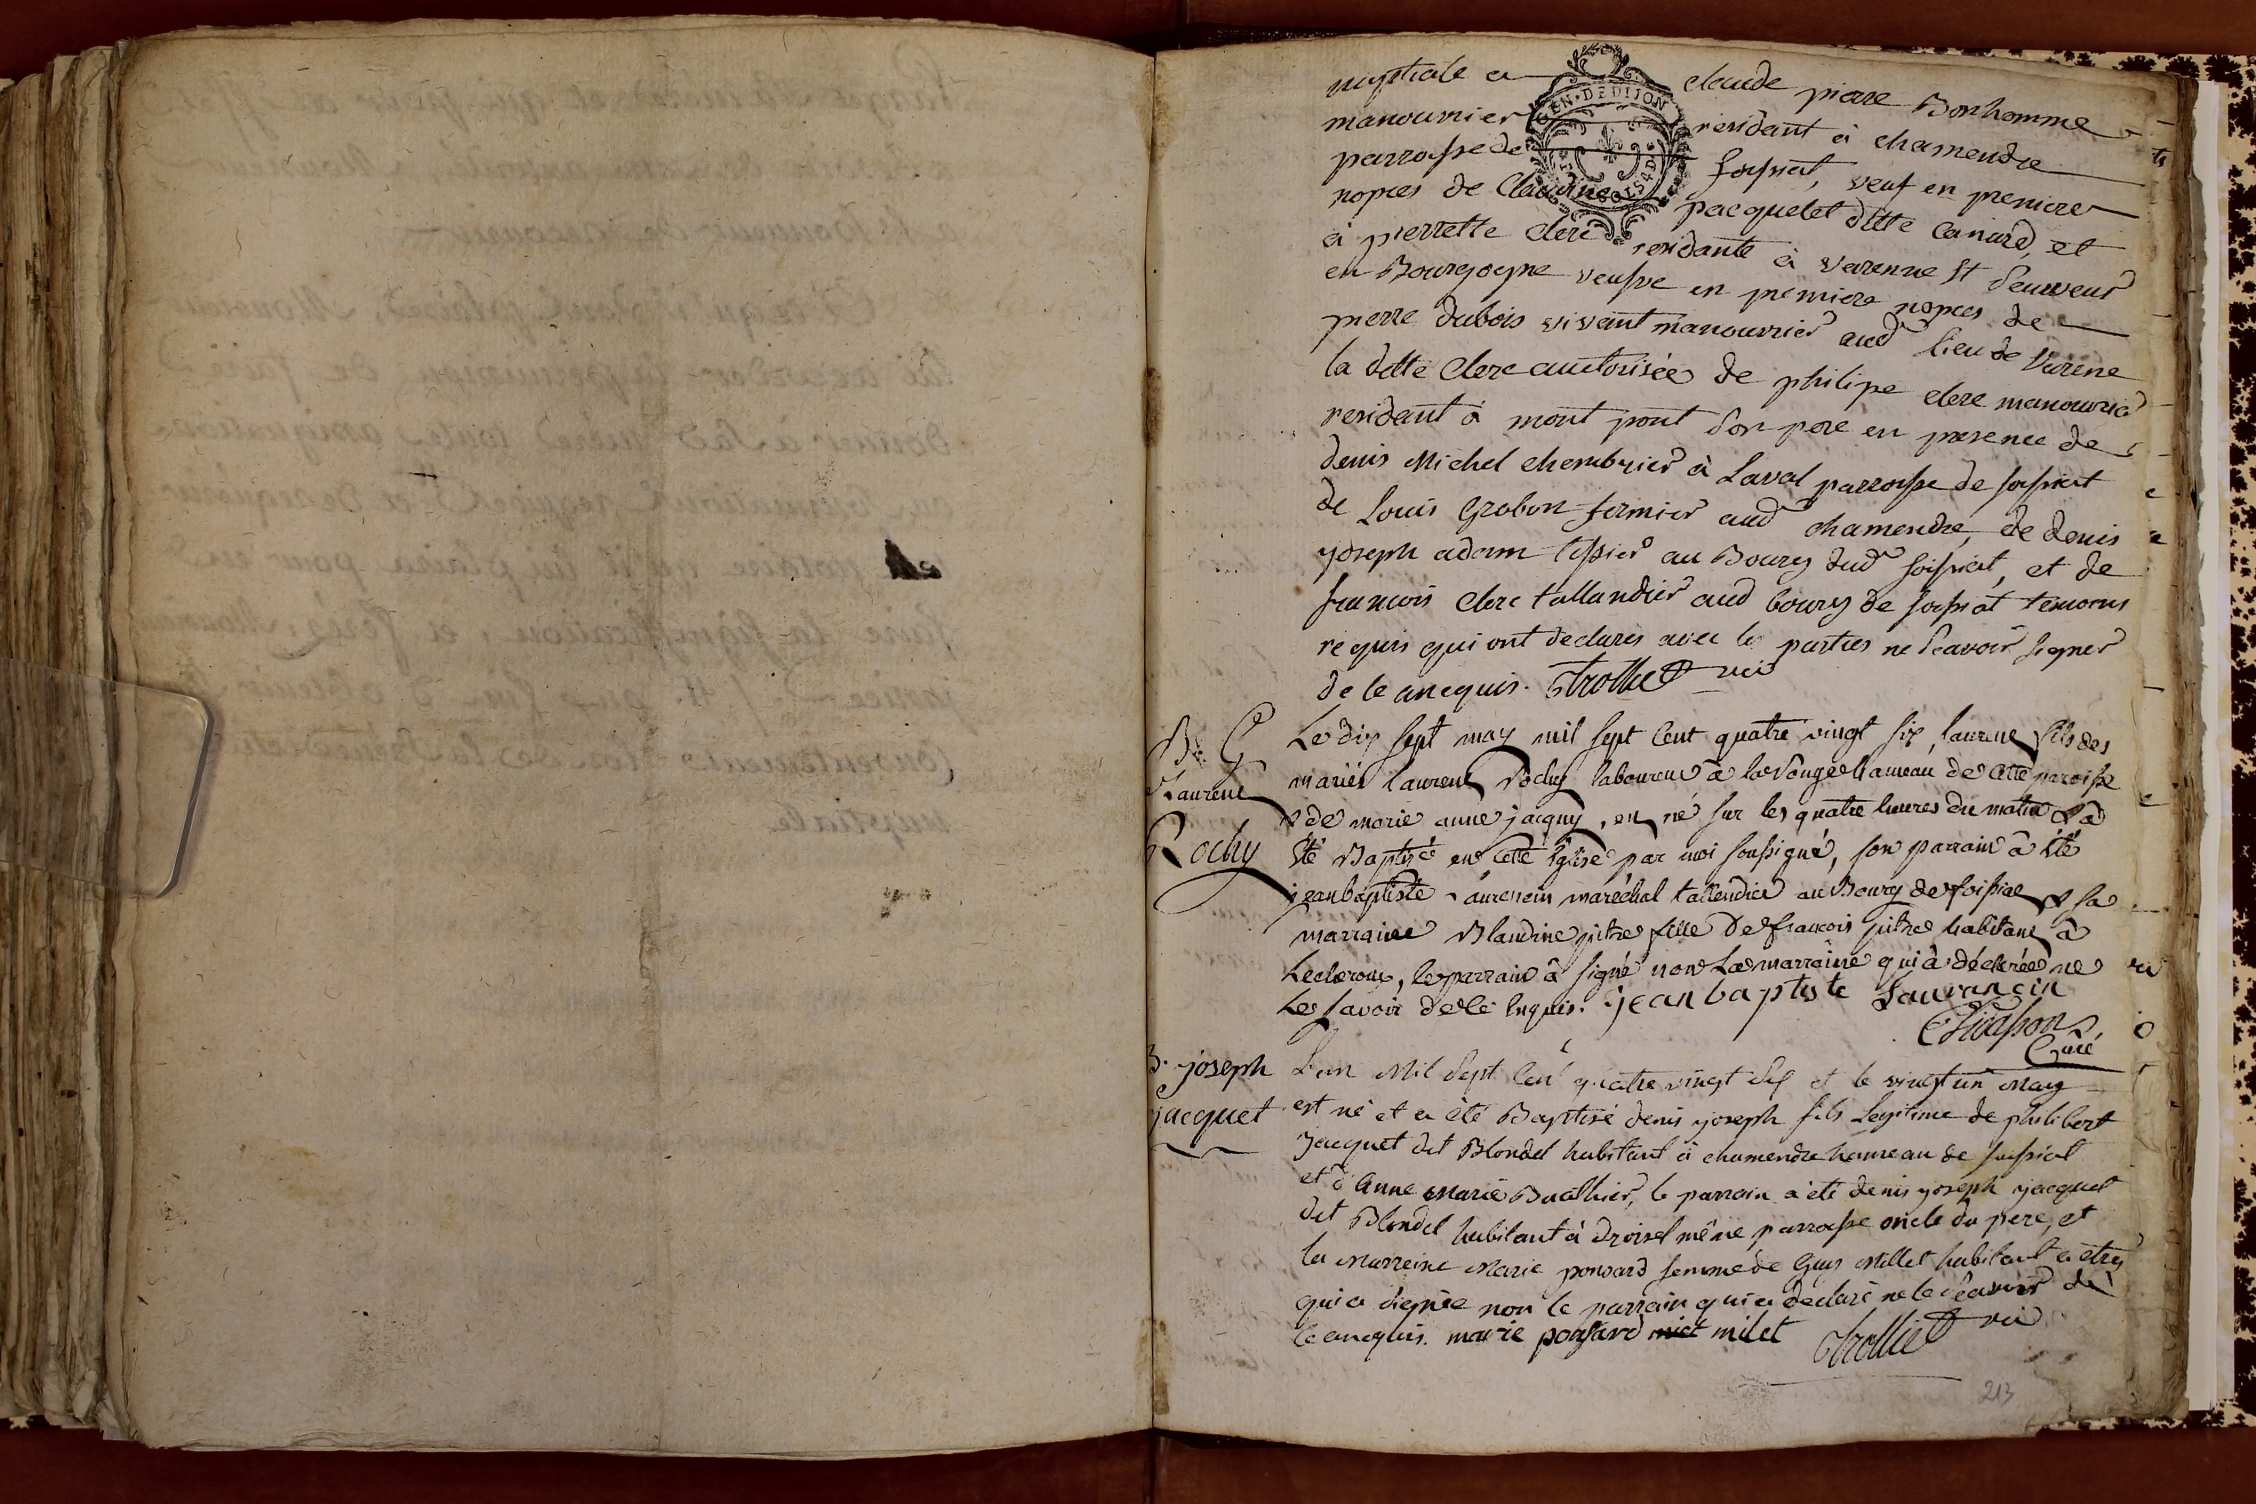 nuptiale a claude pierre Bonhomme
manouvrier residant à chamendre
parroisse de foissiat, veuf en premiere
nopces de Claudine pacquelet ditte Canard, et
à pierrette clerc residante à varenne St Sauveur
en Bourgogne veufve en premiere nopces de
pierre dubois vivant manouvrier aud lieu de Varene
la ditte Clerc authorisée de philipe clerc manouvrier
residant à mont pont son pere en presence de
denis Michel chambrier à Laval parroisse de foissiat
de Louis Grabon fermier aud chamendre, de denis
joseph adam tissier au Bourg dud foissiat, et de
francois clerc tallandier aud bourg de foissiat temoins
requis qui ont declarés avec les parties ne sçavoir signer
de ce enequis. Trolliet vic
EN. DE DIJON
B. G
Laurent
Rochy
Le dix sept may mil sept cent quatre vingt six, laurent fils des
mariés laurent Rochy laboureur à hameau de cette paroisse
& de marie anne jacquy, est né sur les quatre heures du matin & a
été Baptisé en cette Eglise par moi soussigné, son parrain a été
jean baptiste Laurencin maréchal taillendier au Bourg de foissiat & sa
marraine Blandine pitre fille de francois pitre habitant à
, le parrain a signé non La marraine qui a déclarée ne
Le savoir de ce Enquis. jean baptiste Lauranain
Curé
B. joseph
jacquet
L'an Mil Sept Cent quatre vingt six et le vingt un May
est né et a été Baptisé denis joseph fils Legitime de philibert
Jacquet dit Blondel habitant à chamendre hameau de foissiat
et d'Anne Marie Buathier, le parrain a été denis joseph jacquet
dit Blondel habitant à même parroisse oncle du pere, et
la Marreine Marie ponsard femme de Guy Millet habitant à étrez
qui a signée non le parrain qui a déclaré ne le sçavoir de
ce enequis. marie ponsard milet Trolliet vic
213